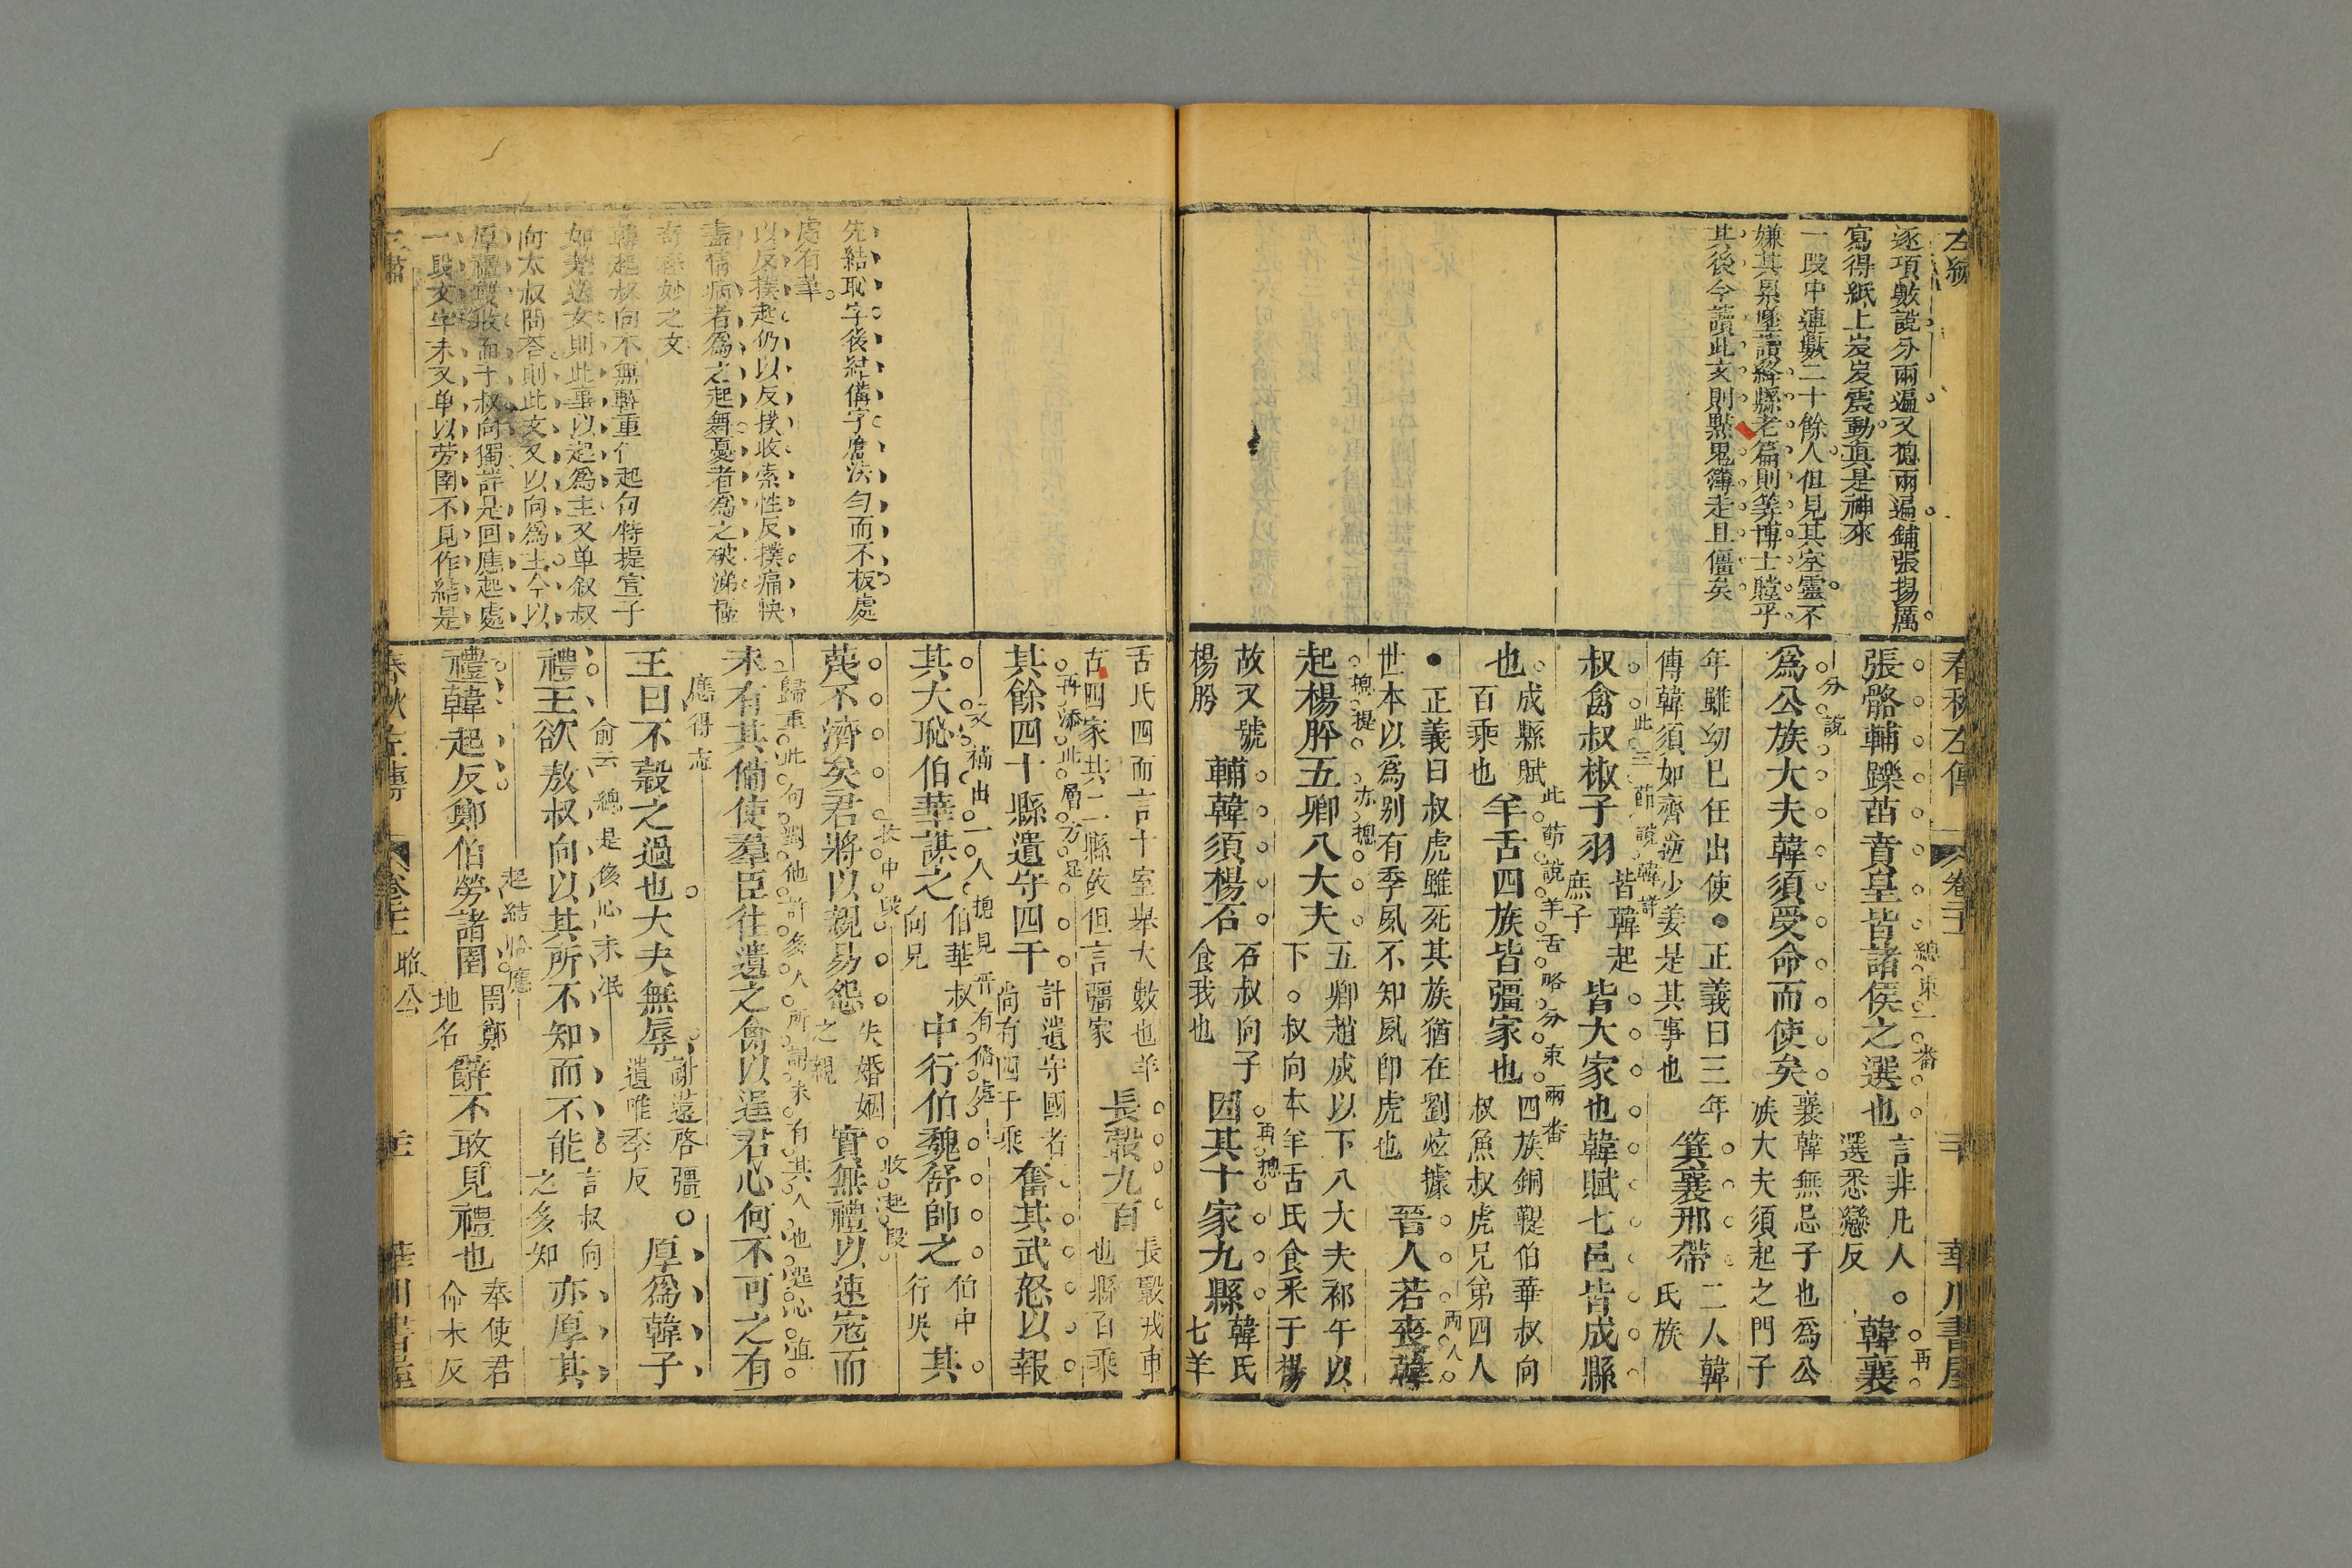 逐項數說分兩遍又總兩遍鋪張揚厲
寫得紙上岌岌震動真是神來
一段中連數二十餘人但見其空靈不
嫌其累墜讀絳縣老篇則筭博士瞠乎
其後今讀此文則點鬼簿走且僵矣
春秋左傳 卷二十 華川書屋
張骼輔躒苗賁皇皆諸侯之選也 言非凡人。選悉戀反 韓襄
爲公族大夫韓須受命而使矣 襄韓無忌子也爲公族大夫須起之門子
年雖幼已任出使●正義曰三年傳韓須如齊逆少姜是其事也 箕襄邢帶 二人韓氏族
叔禽叔椒子羽 皆韓起庶子 皆大家也韓賦七邑皆成縣
也 成縣賦百乘也 羊舌四族皆彊家也 四族銅鞮伯華叔向叔魚叔虎兄弟四人
●正義曰叔虎雖死其族猶在劉炫據世本以爲別有季夙不知夙卽虎也 晉人若喪韓
起楊肸五卿八大夫 五卿趙成以下八大夫祁午以下。叔向本羊舌氏食采于楊
故又號楊肸 輔韓須楊石 石叔向子食我也 因其十家九縣 韓氏七羊
分說
總束一番
再
此三節說韓詳
此節說羊舌略分束兩番
兩人
總提
亦總
再總
先結恥字後結備字應法勻而不板處
處有筆
以反撲起仍以反撲收索性反撲痛快
盡情病者爲之起舞憂者爲之破涕極
奇極妙之文
韓起叔向不無輕重一起句特提宣子
如楚送女則此事以起爲主又单叙叔
向太叔問答則此文又以向爲主今以
厚禮雙收而于叔向獨詳是回應起處
一段文字末又单以勞圉不見作結是
舌氏四而言十室舉大數也羊舌四家共二縣故但言彊家 長轂九百 長轂戎車也縣百乘
其餘四十縣遺守四千 計遺守國者尚有四千乘 奮其武怒以報
其大恥伯華謀之 伯華叔向兄 中行伯魏舒帥之 伯中行吳 其
蔑不濟矣君將以親易怨 失婚姻之親 實無禮以速寇而
未有其備使羣臣往遺之禽以逞君心何不可之有
王曰不穀之過也大夫無辱 謝薳啓彊。遺唯季反 厚爲韓子
禮王欲敖叔向以其所不知而不能 言叔向之多知 亦厚其
禮韓起反鄭伯勞諸圉 圉鄭地名 辭不敢見禮也 奉使君命未反
再添此層方足
又補出一人總見晉有備處
長中段
收起段
歸重此句對他許多人所謂未有其人也逞心直應得志
俞云總是侈心未泯
起結恰應
春秋左傳 卷二十 昭公